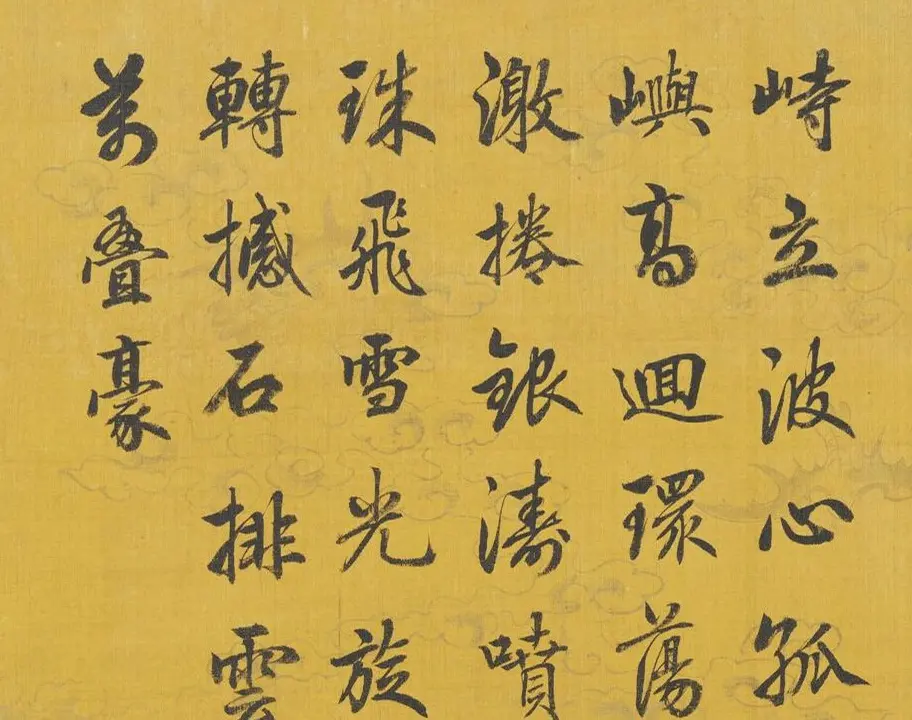 峙立波心孤
嶼高迴環蕩
潎捲銀濤噴
珠飛雪光旋
轉撼石排雲
萬疊豪